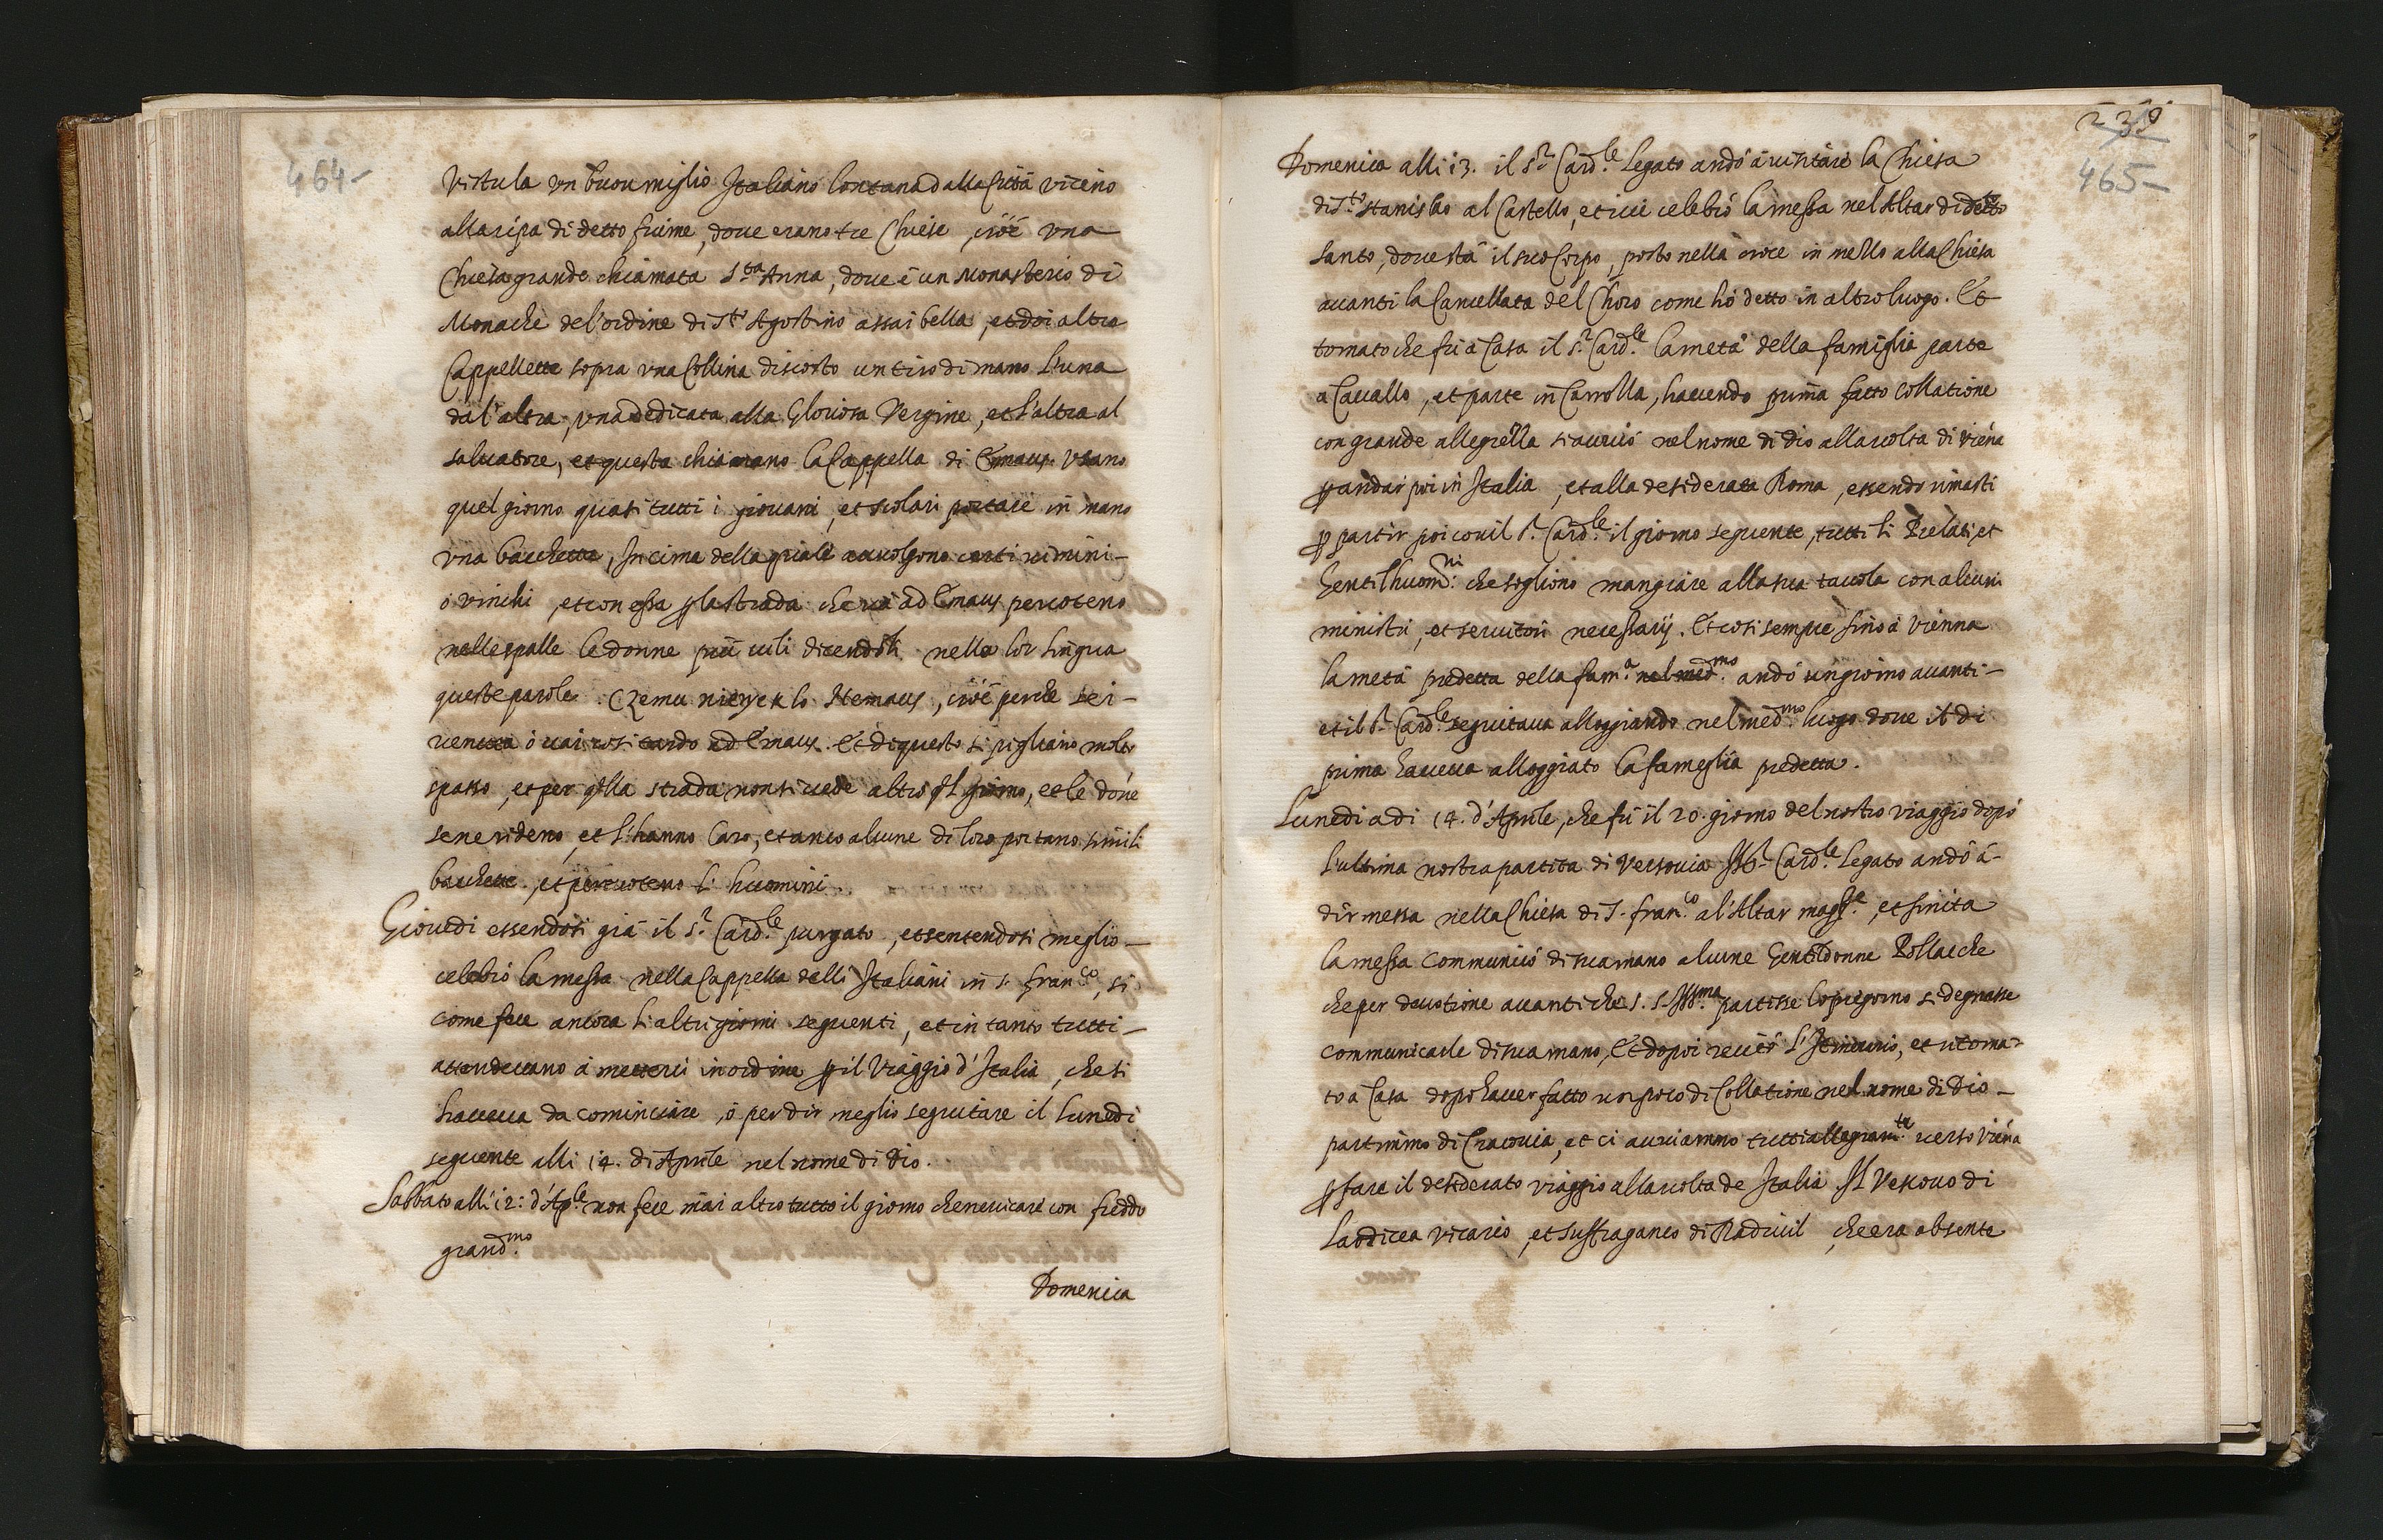 464-
Vistula un buon miglio Italiano lontana dalla Città vicino
alla ripa di detto fiume, dove erano tre Chiese, cioè una
Chiesa grande chiamata S.ta Anna, dove è un Monasterio di
Monache del'ordine di S.to Agostino assai bella, et doi altre
Cappellette sopra una Collina discosto un tiro di mano l'una
dal'altra, una dedicata alla Gloriosa Vergine, et l'altra al
salvatore, et questa chiamano la Cappella di Emaus. Usano
quel giorno quasi tutti i giovani, et scolari portare in mano
una bacchetta, in cima della quale avvolgono certi vimini-
ò vinchi, et con essa p la strada che va ad Emaus percoteno
nelle spalle le donne più vili dicendoli nella lor lingua
queste parole. Czemu Hemaus, cioè perche sei-
venuta ò vai così tardo ad Emaus. Et di questo si pigliano molto
spasso, et per qlla strada non si vede altro ql giorno, et le dóne
se ne rideno, et l'hanno caro, et anco alcune di loro portano simili
bacchette, et percoteno li huomini.
Giovedi essendosi già il S.r Card.le purgato, et sentendosi meglio-
celebrò la messa nella Cappella delli Italiani in S. Fran.co, si
come fece ancora li altri giorni seguenti, et in tanto tutti-
attendevano à mettersi in ordine p il Viaggio d'Italia, che si
haveva da cominciare, ò per dir meglio seguitare il lunedi
seguente alli 14. di Aprile nel nome di Dio.
Sabbato alli 12: d'Ap.le non fece mai altro tutto il giorno che nevicare con freddo
grand.mo
Domenica
239
465-
Domenica alli 13. il S.r Card.le Legato andò à visitare la Chiesa
di S.to Stanislao al Castello, et ivi celebrò la messa nel Altar di detto
Santo, dove stà il suo Corpo, posto nella croce in mezzo alla Chiesa
avanti la Cancellata del Choro come hò detto in altro luogo. Et
tornato che fù à Casa il S.r Card.le la metà della famiglia parte
à Cavallo, et parte in Carrozza, havendo prima fatto Collatione
con grande allegrezza si avviò nel nome di dio alla volta di viéna
p andar poi in Italia, et alla desiderata Roma, essendo rimasti
p partir poi con il S.r Card.le il giorno seguente, tutti li Prelati, et
Gentilhuom.ni che sogliono mangiare alla sua tavola con alcuni
ministri, et servitori necessarij. Et così sempre sino à Vienna
la metà predetta della fam.a nel med.mo andò un giorno avanti-
et il S.r Card.le seguitava alloggiando nel med.mo luogo dove il dì
prima haveva alloggiato la fameglia predetta.
Lunedi a di 14. d'Aprile, che fù il 20. giorno del nostro viaggio dopò
l'ultima nostra partita di Versovia Ill S.r Card.le Legato andò à-
dir messa nella Chiesa di S. Fran.co al'Altar magg.re, et finita
la messa communicò di sua mano alcune Gentildonne Pollacche
che per devotione avanti che S. S. Ill.ma partisse lo pregorno si degnasse
communicarle di sua mano, Et dopoi recitò l'Itinerario, et ritorna-
to a Casa dopò haver fatto un poco di Collatione nel nome di Dio-
partimmo di Cracovia, et ci avviammo tutti allegram.te verso viéna
p fare il desiderato viaggio alla volta de Italia. Il Vescovo di
Laodicea vicario, et suffraganeo di Radivil, che era absente